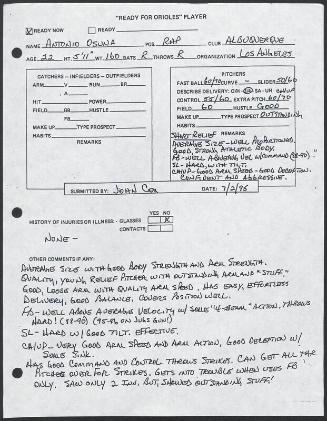 "READY FOR ORIOLES" PLAYER
READY NOW READY
NAME ANTONIO OSUNA POS RHP CLUB ALBUQUERQUE
AGE 22 HT 5'11" WT 160 BAT R THROWS R ORGANIZATION LOS ANGELES
CATCHERS - INFIELDERS - OUTFIELDERS
ARM V RUN BR.
V A
HIT POWER
FIELD BR HUSTLE
GR
MAKE UP TYPE PROSPECT
HABITS
REMARKS
PITCHERS
FAST BALL 60/70 CURVE - SLIDER 50/60
DESCRIBE DELIVERY: OH- SA - UH
CONTROL 55/60 EXTRA PITCH 60/70
FIELD 60 HUSTLE GOOD
MAKE UP TYPE PROSPECT OUTSTANDING
HABITS
SHORT RELIEF REMARKS
AVERAGE SIZE - WELL PROPORTIONED,
GOOD, STRONG ATHLETIC BODY.
FB - WELL ABOVE AVG VEL W/COMMAND (88-90).
SL - HARD, WITH TILT.
CH/UP - GOOD ARM SPEED - GOOD DECEPTION.
CONFIDENT AND AGGRESSIVE.
SUBMITTED BY: JOHN COX DATE: 7/2/96
YES NO
HISTORY OF INJURIES OR ILLNESS - GLASSES X
CONTACTS
NONE -
OTHER COMMENTS IF ANY:
AVERAGE SIZE WITH GOOD BODY STRENGTH AND ARM STRENGTH.
QUALITY, YOUNG RELIEF PITCHER WITH OUTSTANDING ARM AND "STUFF."
GOOD, LOOSE ARM WITH QUALITY ARM SPEED, HAS EASY, EFFORTLESS
DELIVERY, GOOD BALANCE, COVERS POSITION WELL.
FB - WELL ABOVE AVERAGE VELOCITY W/SOME "4-SEAM" ACTION, THROWS
HARD! (88-90) (95-96 ON JUGS GUN)
SL - HARD W/GOOD TILT. EFFECTIVE.
CH/UP - VERY GOOD ARM SPEED AND ARM ACTION, GOOD DECEPTION W/
SOME SINK.
HAS GOOD COMMAND AND CONTROL THROWS STRIKES. CAN GET ALL
PITCHES OVER FOR STRIKES, GETS INTO TROUBLE WHEN USES FB
ONLY. SAW ONLY 2 INN. BUT, SHOWED OUTSTANDING STUFF!